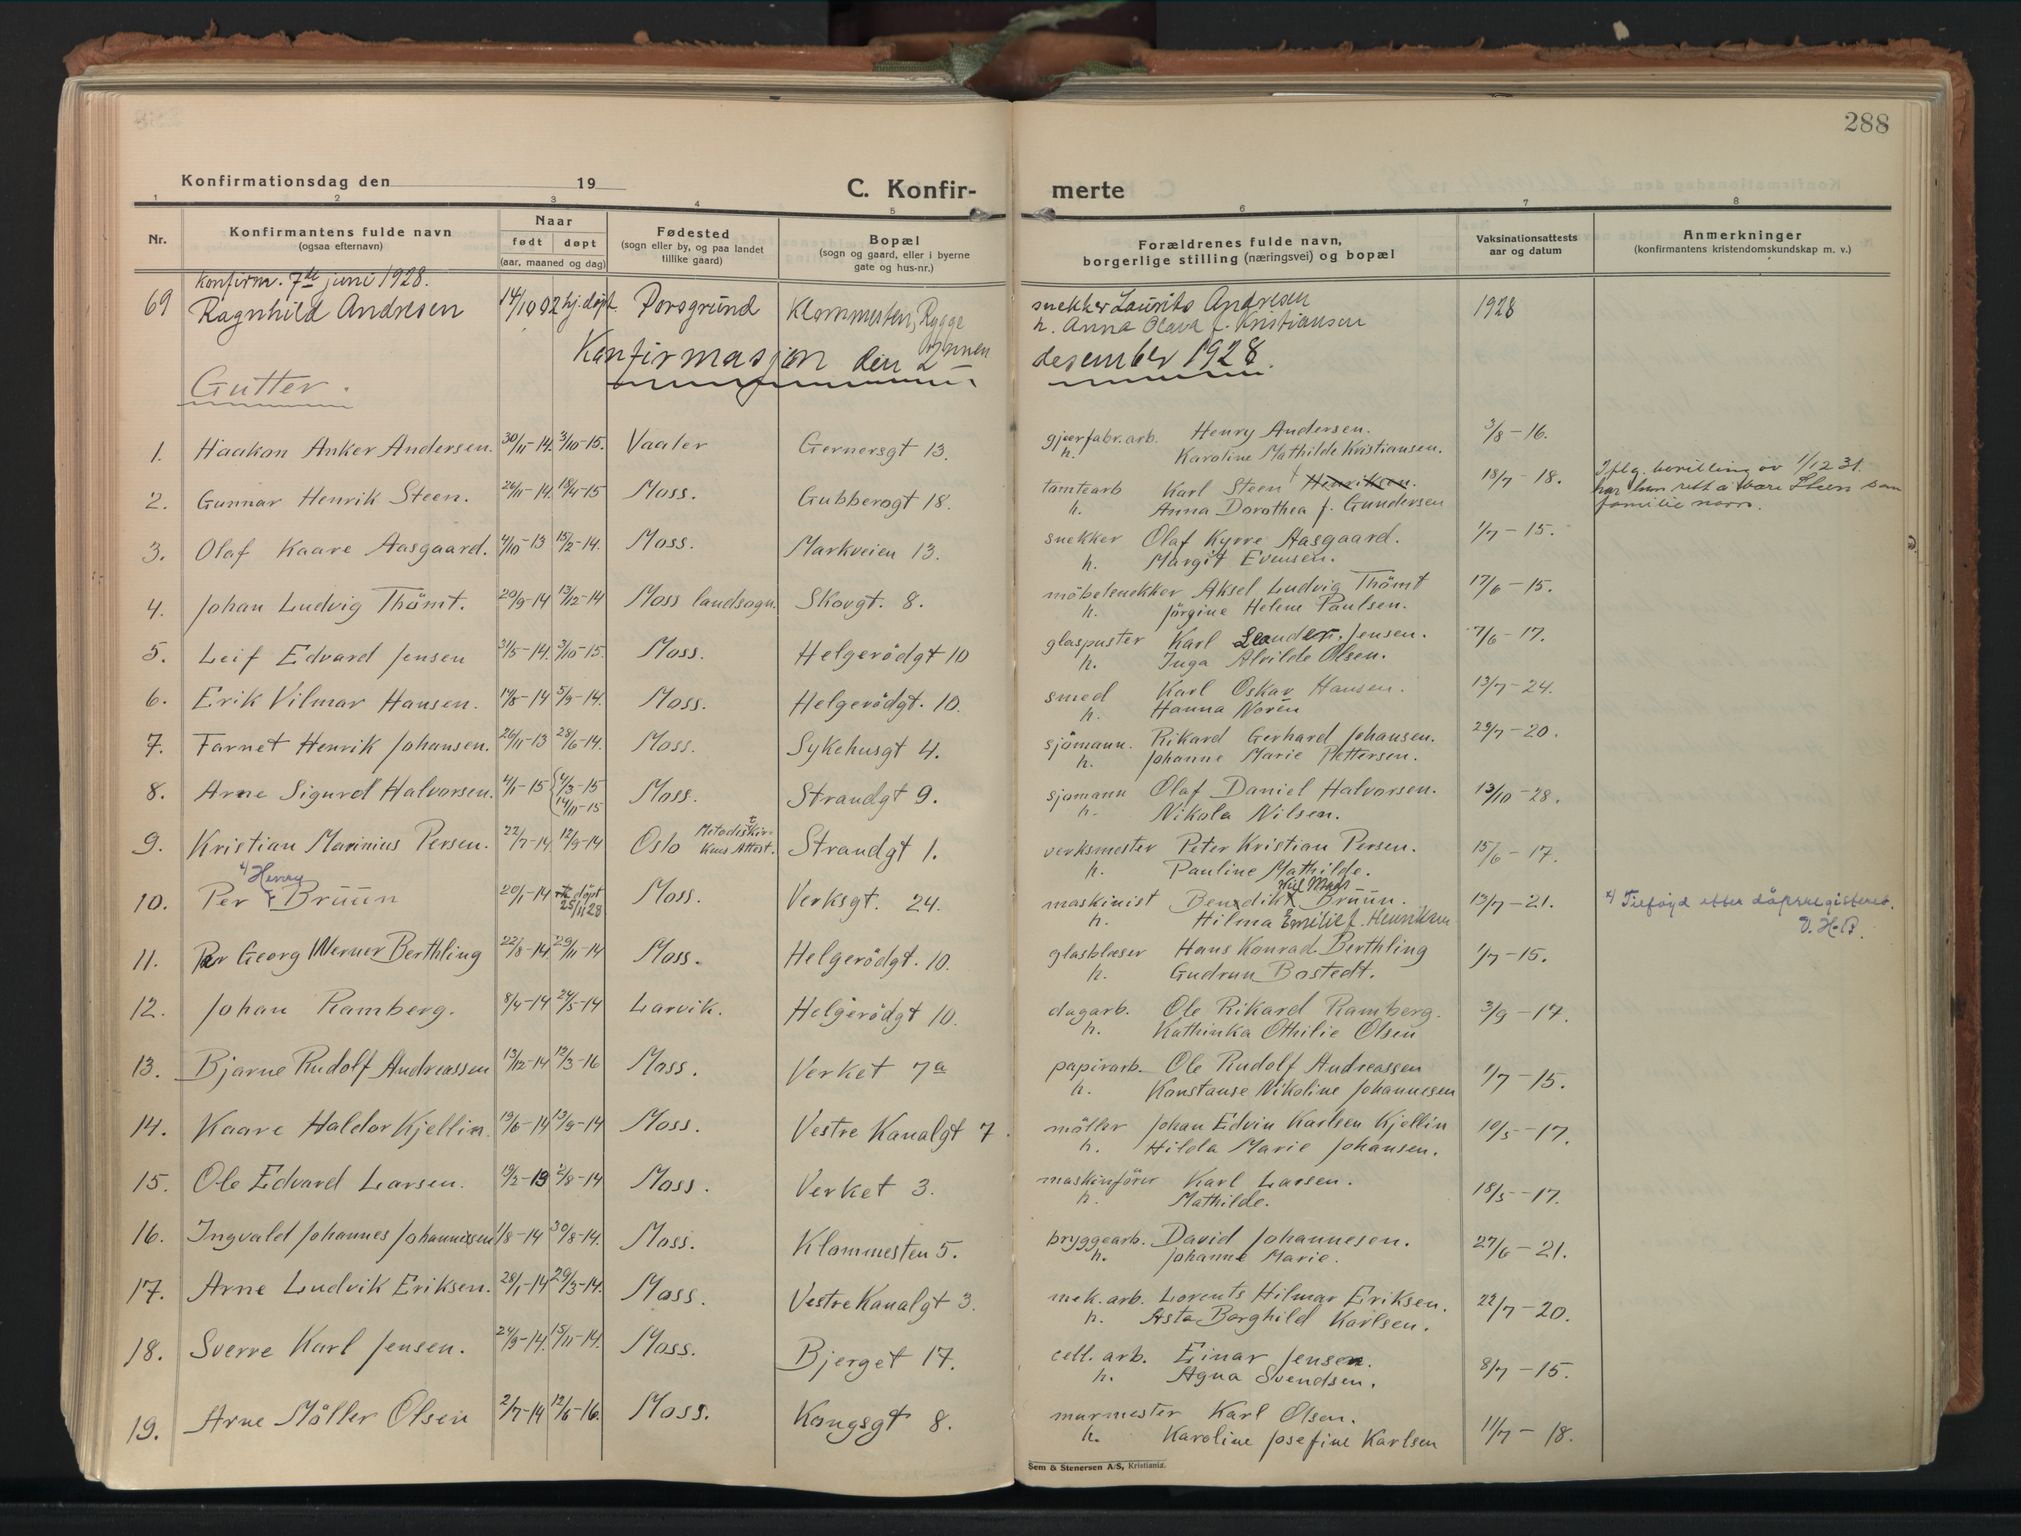 288
Konfirmationsdag den 19
C. Konfir- merte
1 2 3 4 5 6 7 8
Nr. Konfirmantens fulde navn (ogsaa efternavn) Naar født døpt (aar, maaned og dag) Fødested (sogn eller by, og paa landet tillike gaard) Bopæl (sogn og gaard, eller i byerne gate og hus-nr.) Forældrenes fulde navn, borgerlige stilling (næringsvei) og bopæl Vaksinationsattests aar og datum Anmerkninger (konfirmantens kristendomskundskap m. v.)
Konfirm. 7de juni 1928.
69 Ragnhild Andresen 14/10 02 hj. døpt Porsgrund Klommesten, Rygge snekker Laurits Andresen 1928
h. Anna Olava f. Kristiansen
Konfirmasjon den 2 annen desember 1928.
Gutter.
1. Haakon Anker Andersen. 30/11-14. 3/10-15. Vaaler Gernersgt 13. gjærfabr. arb. Henry Andersen. 3/8-16.
h. Karoline Mathilde Kristiansen.
2. Gunnar Henrik Steen. 26/11-14. 18/4-15 Moss. Gubberogt 18. tomtearb Karl Steen Henriksen. 18/7-18. Iflg. bevilling av 1/12 31.
h. Anna Dorothea f. Gundersen har han rett å bære Steen som
familie navn.
3. Olaf Kaare Aasgaard. 4/10-13 15/2-14. Moss. Markveien 13. snekker Olaf Kyrre Aasgaard. 1/7-15.
h. Margit Evensen.
4. Johan Ludvig Thömt. 20/9-14 13/12-14 Moss landsogn. Skovgt. 8. möbelsnekker Aksel Ludvig Thömt 17/6-15.
h. Jörgine Helene Paulsen.
5. Leif Edvard Jensen 31/5-14. 3/10-15. Moss. Helgerödgt 10 glaspuster Karl Leander Jensen. 7/6-17.
h. Inga Alvilde Olsen.
6. Erik Vilmar Hansen. 17/8-14 5/9-14. Moss. Helgerödgt. 10. smed Karl Oskar Hansen. 13/7-24.
h. Hanna Norén
7. Farnet Henrik Johansen. 26/11-13 28/6-14. Moss. Sykehusgt 4. sjömann. Rikard Gerhard Johansen. 23/7-20.
h. Johanne Marie Pettersen.
8. Arne Sigurd Halvorsen. 4/1-15 4/3-15 Moss. Strandgt 9. sjömann Olaf Daniel Halvorsen. 13/10-28.
14/11-15 h. Nikola Nilsen.
9. Kristian Marinius Persen. 22/7-14 12/9-14 Oslo Metodistkirkens Attest. Strandgt 1. verksmester Peter Kristian Persen. 15/6-17.
h. Pauline Mathilde.
Henry
10. Per Bruun 20/1-14 døpt 25/11 28 Moss. Verksgt. 24. maskinist Bendikt Bruun. 13/7-21. Tilføyd etter dåpsregisteret.
h. Hilma Emilie f. Henriksen
11. Per Georg Werner Berthling 22/8-14 29/11-14 Moss. Helgerödgt. 10. glasblæser Hans Konrad Berthling 1/7-15.
h. Gudrun Bostedt.
12. Johan Ramberg. 8/4-14 24/5-14 Larvik. Helgerödgt 10. dagarb. Ole Rikard Ramberg. 3/9-17.
h. Kathinka Othilie Olsen
13. Bjarne Rudolf Andreassen 13/12-14 12/3-16 Moss. Verket 7a papirarb. Ole Rudolf Andreassen 1/7-15.
h. Konstanse Nikoline Johannesen
14. Kaare Haldor Kjellin. 19/6-14 13/9-14 Moss. Vestre Kanalgt 7. möller Johan Edvin Karlsen Kjellin 10/5-17.
h. Hilda Marie Johansen.
15. Ole Edvard Larsen. 19/2-13 2/8-14 Moss. Verket 3. maskinförer Karl Larsen. 18/5-17.
h. Mathilde.
16. Ingvald Johannes Johannessen 11/8-14 30/8-14. Moss. Klommesten 5. bryggearb. David Johannesen. 27/6-21.
h. Johanne Marie.
17. Arne Ludvik Eriksen. 28/1-14 29/3-14. Moss. Vestre Kanalgt 3. mek. arb. Lorents Hilmar Eriksen. 22/7-20.
h. Asta Borghild Karlsen.
18. Sverre Karl Jensen. 24/9-14. 15/11-14. Moss. Bjerget 17. cell. arb. Einar Jensen. 8/7-15.
h. Agna Svendsen.
19. Arne Möller Olsen 2/7-14 12/6-16. Moss. Kongsgt 8. murmester Karl Olsen. 11/7-18.
h. Karoline Josefine Karlsen
Sem & Stenersen A/S, Kristiania.